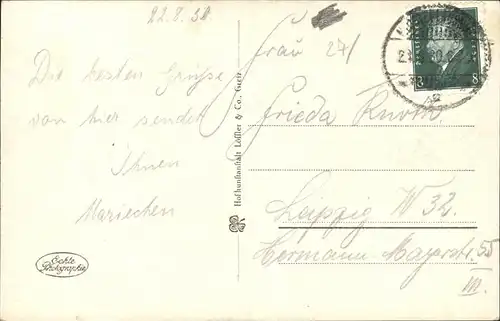 22.8.30
Die besten Grüße
von hier sendet
Ihnen
Mariechen
Echte
Photographie
Hofkunstanstalt Löffler & Co., Greiz
Frau 271
Frieda
Leipzig W 32.
Hermann Mayerstr. 55
III.
8 8